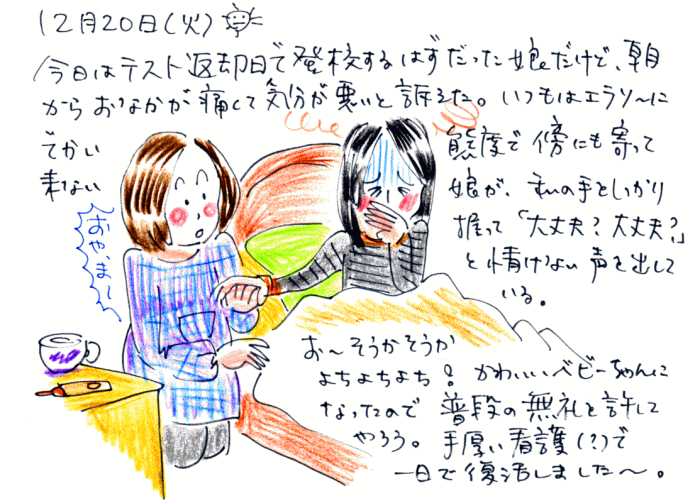 12月20日(火)
今日はテスト返却日で登校するはずだった娘だけど、朝
からおなかが痛くて気分が悪いと訴えた。いつもはエラソーに
でかい態度で傍にも寄って
来ない娘が、私の手をしっかり
握って「大丈夫?大丈夫?」
と情けない声を出して
いる。
おや、まー
お〜そうかそうか
よちよちよち!かわいいベビーちゃんに
なったので普段の無礼を許して
やろう。手厚い看護(?)で
一日で復活しました〜。